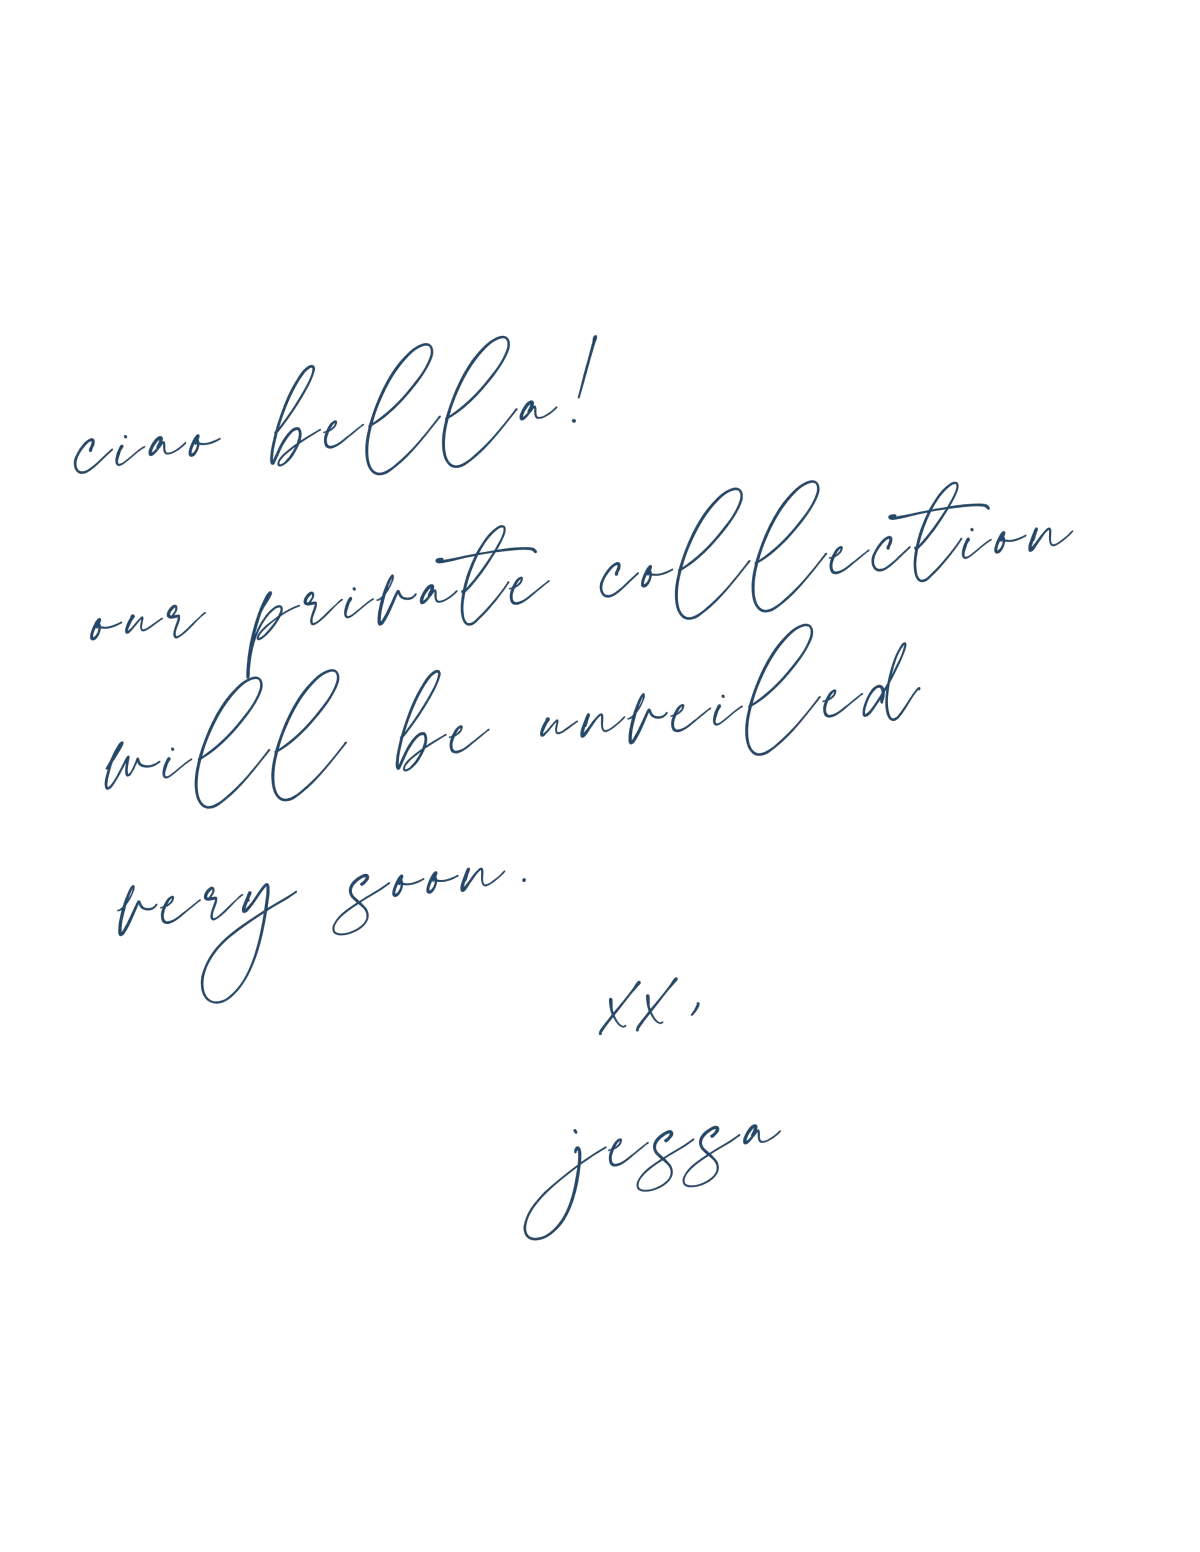 ciao bella!
our private collection
will be unveiled
very soon.
xx,
jessa